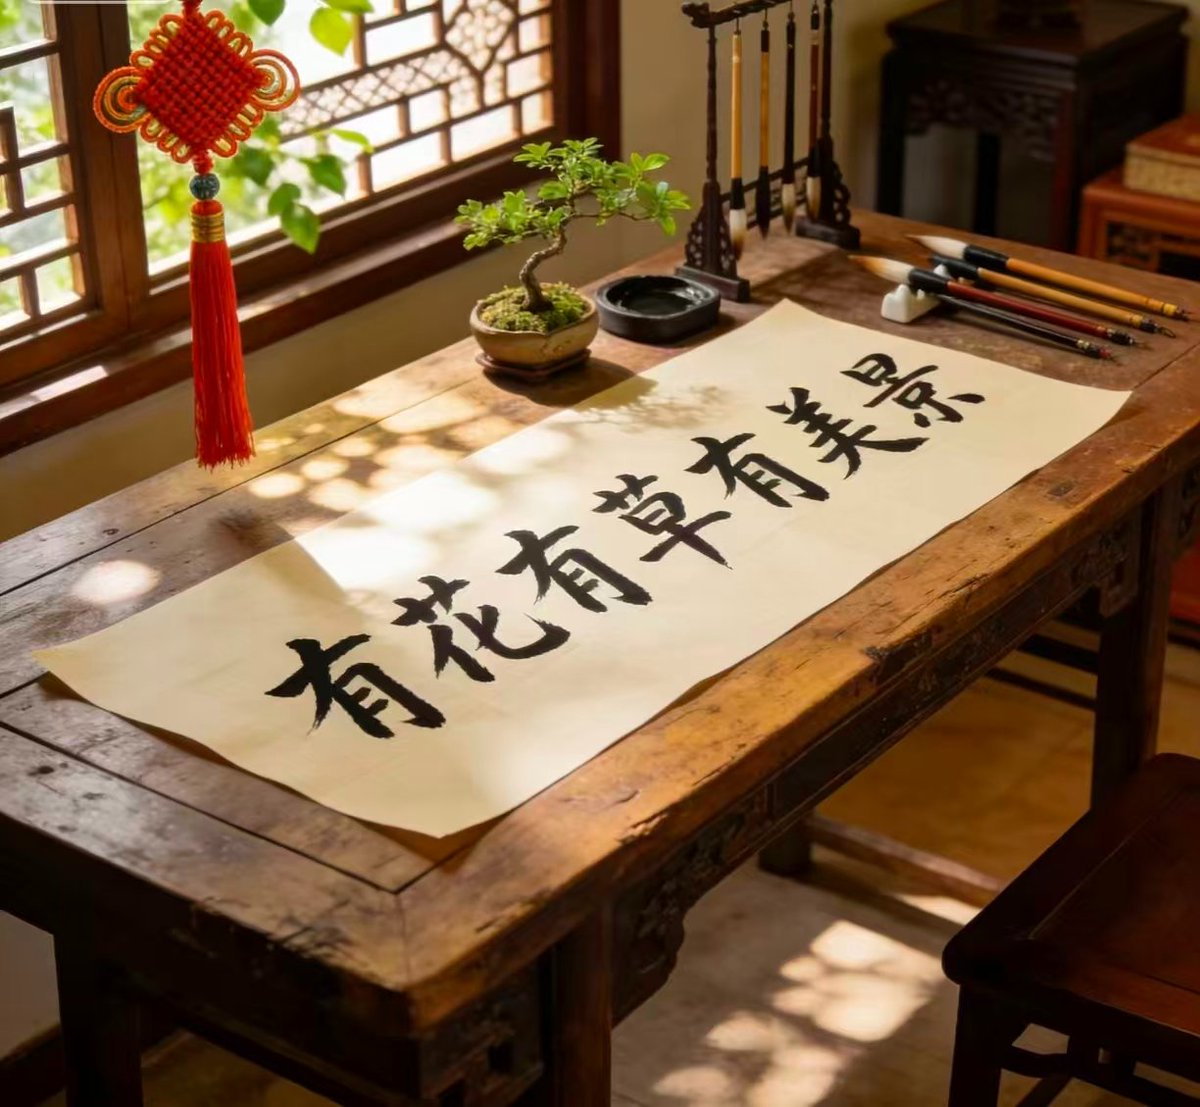 有花有草有美景